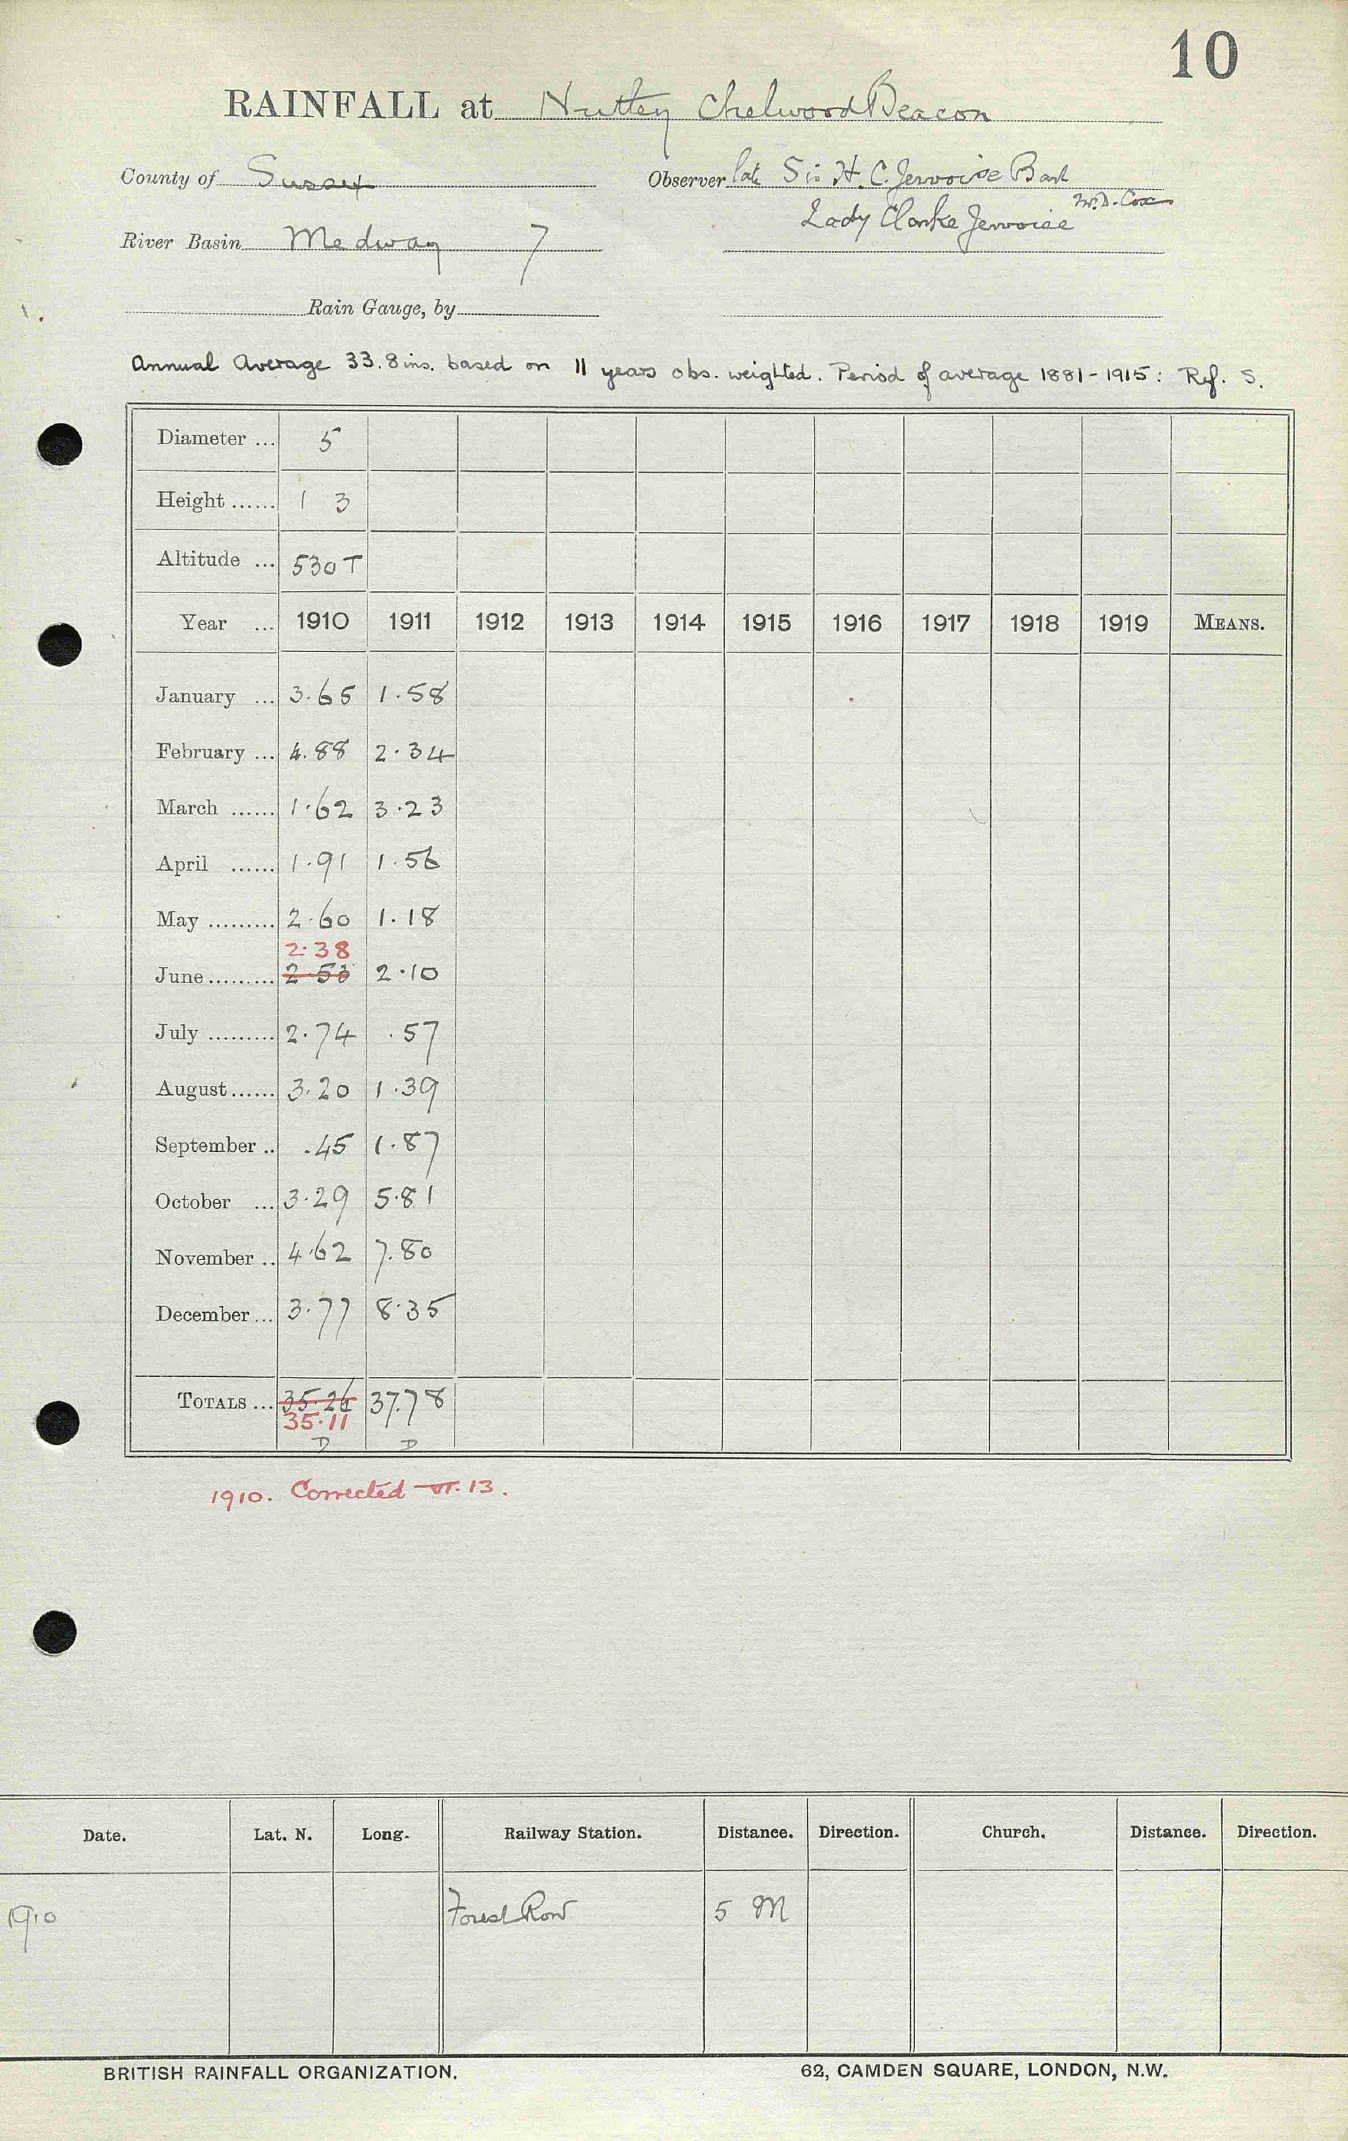 10
RAINFALL at Nutley Chelwood Beacon
County of Sussex
Observer late Sir H. C. Jervoise Bart
W. D. Cox
River Basin Medway 7
Lady Clarke Jervoise
Rain Gauge, by
Annual Average 33.8 ins. based on 11 years obs. weighted. Period of average 1881-1915: Ref. S.
Diameter ... 5
Height ...... 1 3
Altitude ... 530 T
Year ... 1910 1911 1912 1913 1914 1915 1916 1917 1918 1919 MEANS.
January ... 3.65 1.58
February ... 4.88 2.34
March ...... 1.62 3.23
April ...... 1.91 1.56
May ......... 2.60 1.18
2.38
June ......... 2.53 2.10
July ......... 2.74 .57
August ...... 3.20 1.39
September .. .45 1.87
October ... 3.29 5.81
November .. 4.62 7.80
December ... 3.77 8.35
TOTALS ... 35.26 37.78
35.11
D D
1910. Corrected 13.
Date. Lat. N. Long. Railway Station. Distance. Direction. Church. Distance. Direction.
1910 Forest Row 5 M
BRITISH RAINFALL ORGANIZATION. 62, CAMDEN SQUARE, LONDON, N.W.